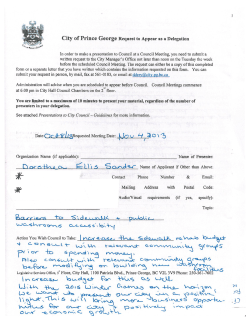 City of Prince George Request to Appear as a Delegation
In order to make a presentation to Council at a Council Meeting, you need to submit a
written request to the City Manager's Office not later than noon on the Tuesday the week
before the scheduled Council Meeting. The request can either be a copy of this completed
form or a separate letter that you have written which contains the information requested on this form. You can
submit your request in person, by mail, fax at 561-0183, or email to
Administration will advise when you are scheduled to appear before Council. Council Meetings commence
at 6:00 pm in City Hall Council Chambers on the 2nd floor.
You are limited to a maximum of 10 minutes to present your material, regardless of the number of
presenters in your delegation.
See attached Presentations to City Council - Guidelines for more information.
Date: Requested Meeting Date: Nov 4, 2013
Organization Name (if applicable): Name of Presenter
Dorothy Ellis Sander Name of Applicant if Other than Above:
Contact Phone Number & Email:
Mailing Address with Postal Code
Audio/Visual requirements (if yes, specify)
Topic:
Barriers to Sidewalk + public
washrooms accessibility
Action You Wish Council to Take: Increase the Sidewalk rehab budget
+ consult with relevant community groups
prior to spending money.
Also consult with relevant community groups
before modifying or building new washroom
Legislative Services Office, 1st Floor, City Hall, 1100 Patricia Blvd., Prince George, BC V2L 3V9 Phone: 250.561.
Increase budget for this as well.
With the 2015 Winter Games on the horizon,
we want to present our city in a positive
light. This will bring more business opportu-
nities for our city + positively impact
our economic growth.